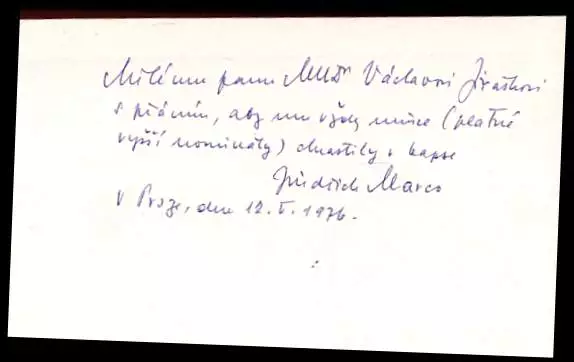 Milému panu MUDr Václavovi Jiráskovi
s přáním, aby mu vždy mince (platné
vyšší nominály) chrastily v kapse
Jindřich Marco
V Praze, dne 12. I. 1976.